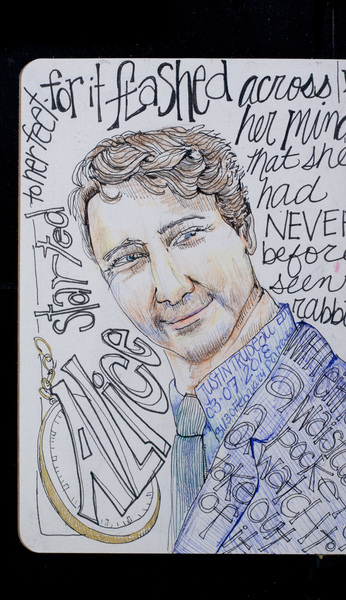 Alice
started
to her feet,
for it flashed across
her mind
that she
had
NEVER
before
seen
rabbi
pocket
or a
watch to
out
of it
JUSTIN TRUDEAU
03.07.2018